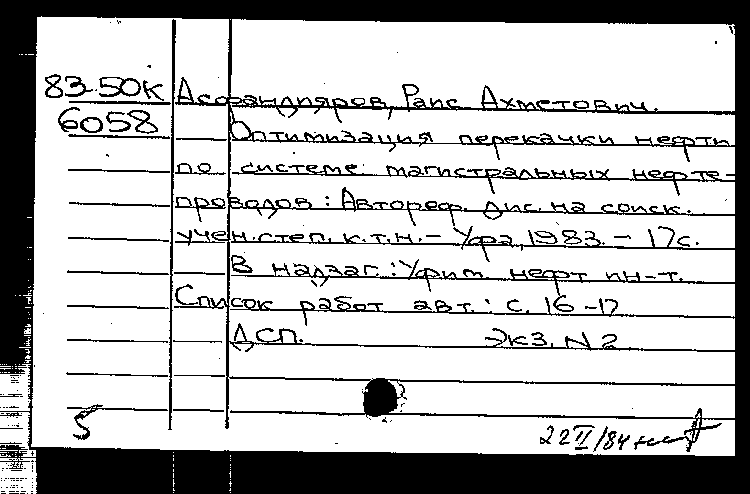 83-50К Асфандияров, Раис Ахметович.
6058 Оптимизация перекачки нефти
по системе магистральных нефте-
проводов: Автореф. дис. на соиск.
учен. степ. к.т.н. - Уфа, 1983. - 17с.
В надзаг.: Уфим. нефт ин-т.
Список работ авт.: с. 16-17
ДСП. Экз. N 2
5 22 II/84